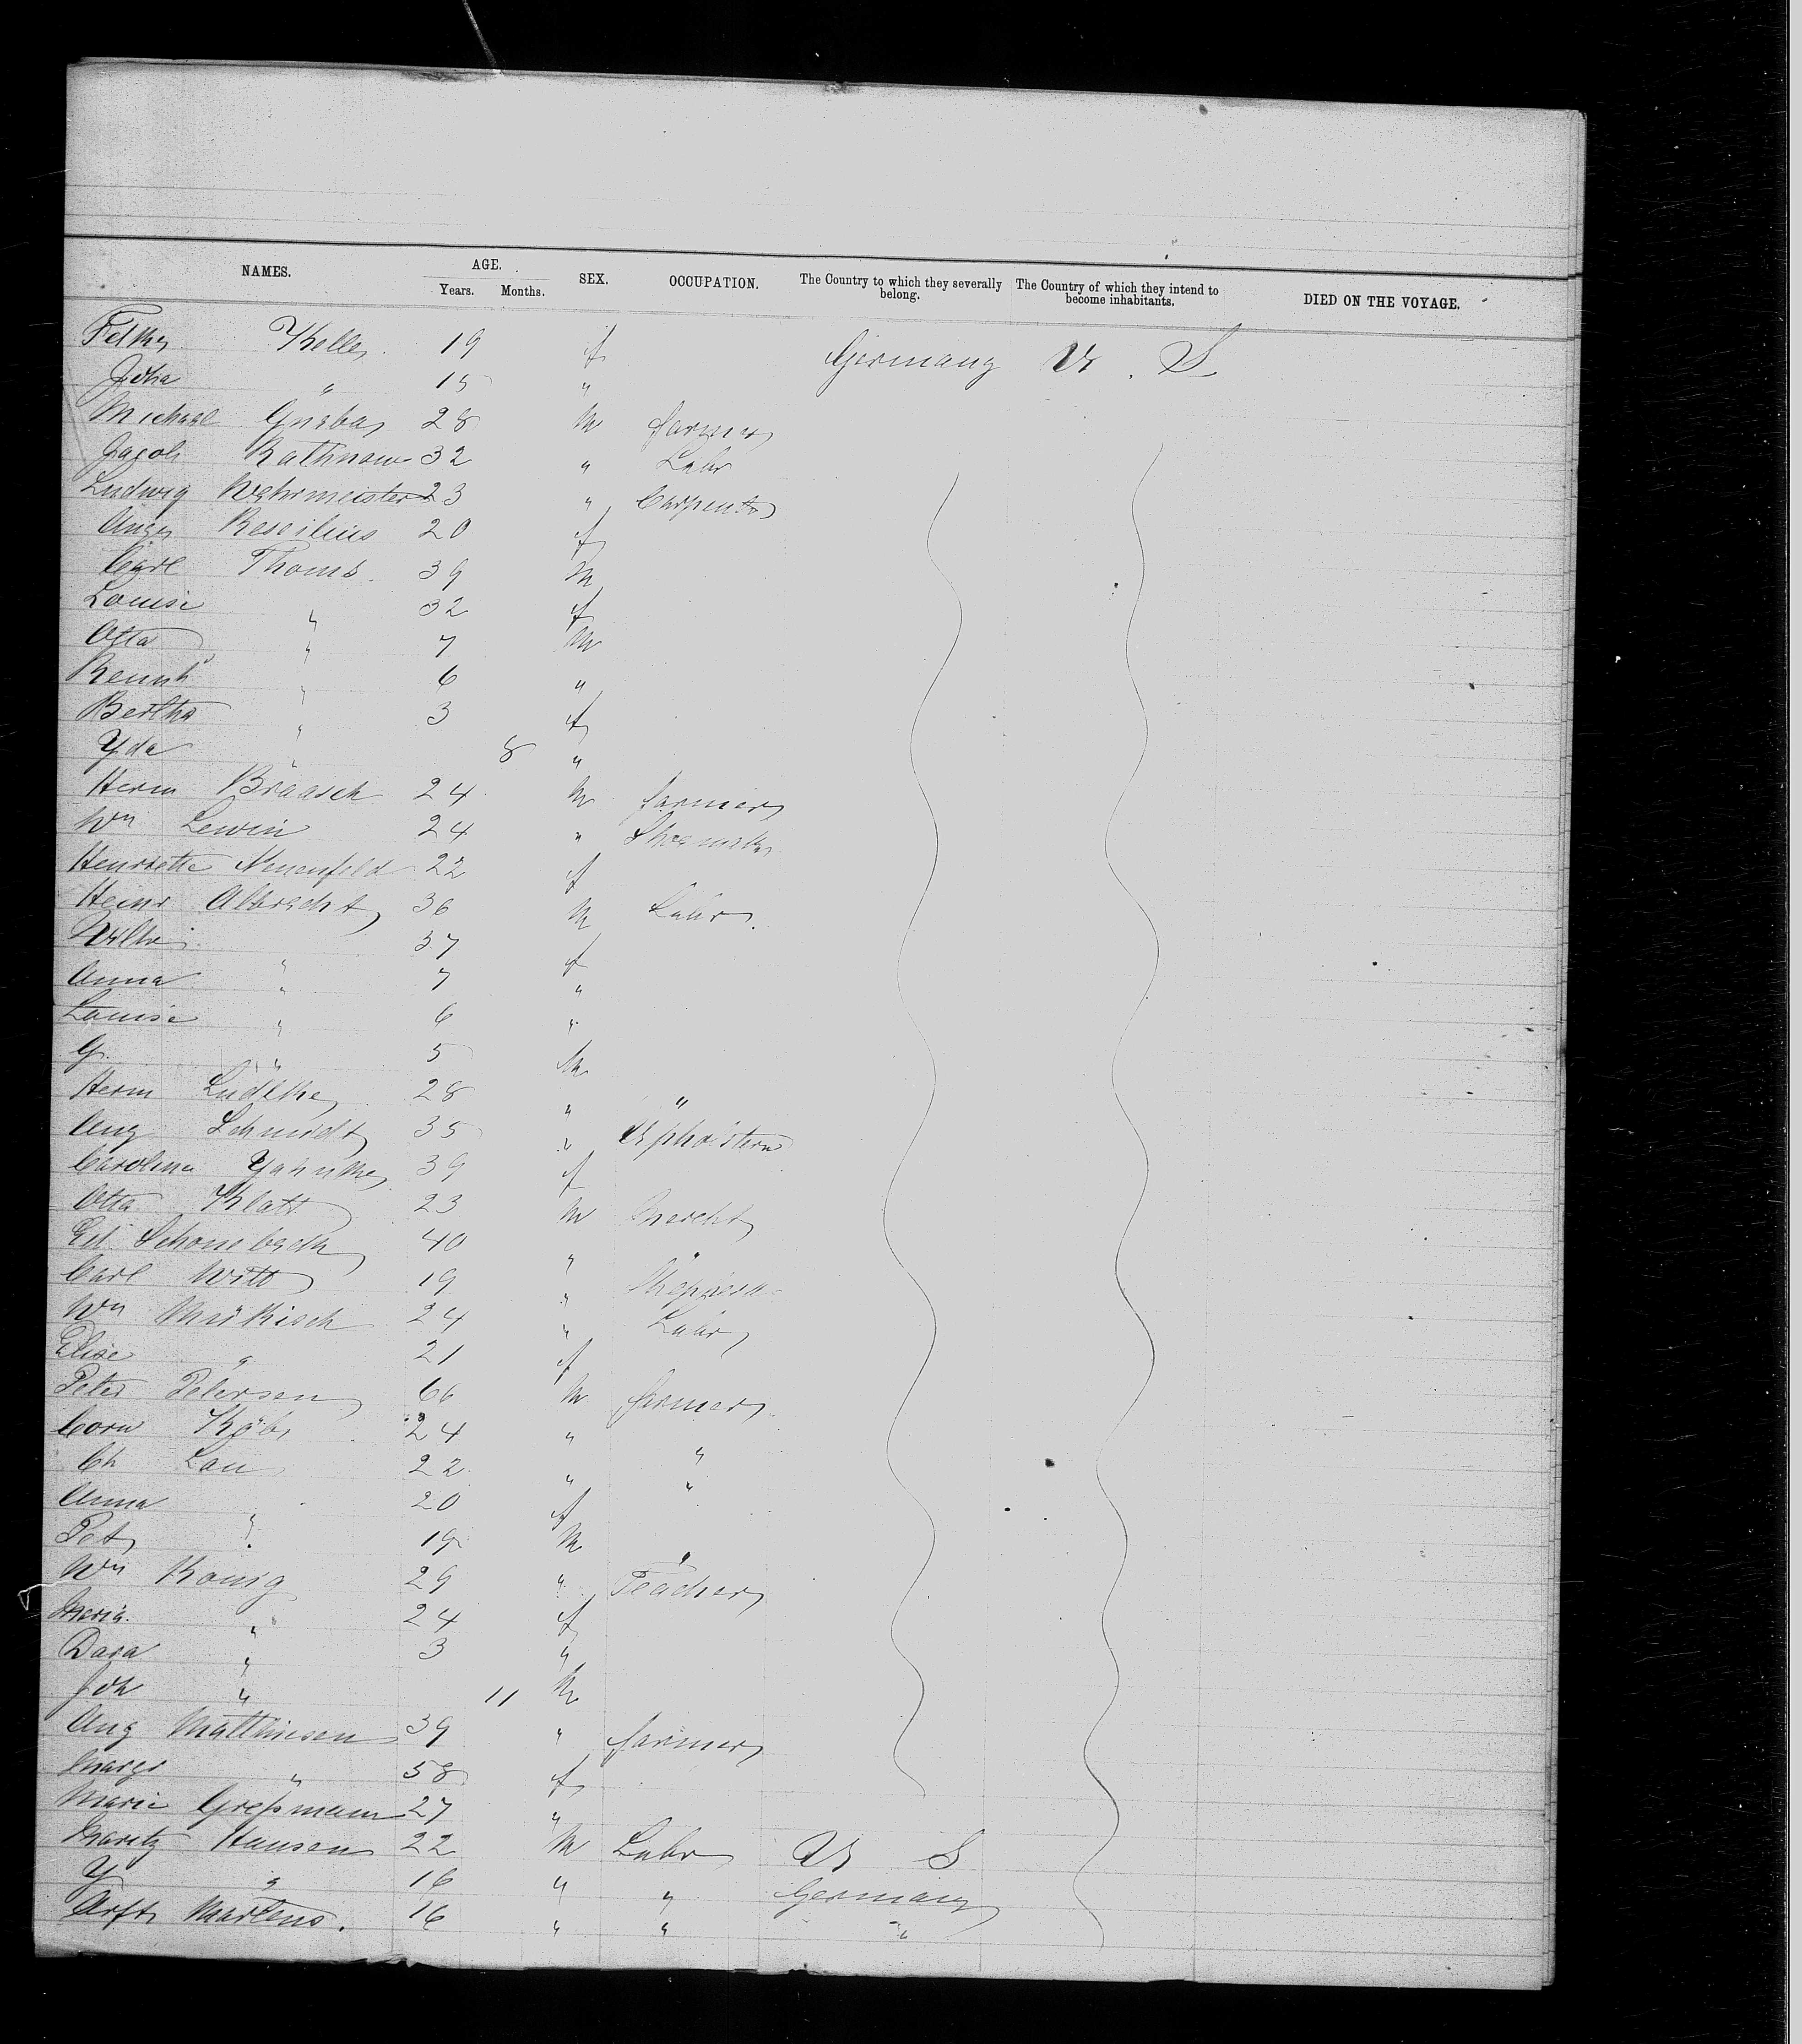 NAMES. AGE. Years. Months. SEX. OCCUPATION. The Country to which they severally belong. The Country of which they intend to become inhabitants. DIED ON THE VOYAGE.
Keller 19 f Germany U. S
Joha " 15 "
Michael 28 m farmer
Jacob Rathnow 32 " Labr
Ludwig Wehrmeister 23 " Carpenter
20 f
Carl Thoms 39 m
Louise " 32 f
Otto " 7 m
" 6 "
Bertha " 3 f
Yda " 8 "
Herm Braasch 24 m farmer
Wm Lewin 24 " Shoemaker
Henriette Neuenfeld 22 f
Heinr Albrecht 36 m Labr.
Wilh " 37 f
Anna " 7 "
Louise " 6 "
G. " 5 m
Herm Lüdtke 28 " "
Aug Schmidt 35 "
Carolina Yahnke 39 f
Otto Klatt 23 m
Ed. 40 " "
Carl Witt 19 "
Wm 24 " Labr
Elise " 21 f
Peter Petersen 66 m farmer
Corn 24 " "
Ch Lau 22 " "
Anna " 20 f
Pet " 19 m "
Wm Konig 29 " Teacher
Maria " 24 f
Dora " 3 "
Joh " 11 m
Aug Matthiesen 39 " farmer
Margr " 58 f
Marie 27 "
Moritz Hansen 22 m Labr U S
Y " 16 " " Germany
Martens. 16 " " "